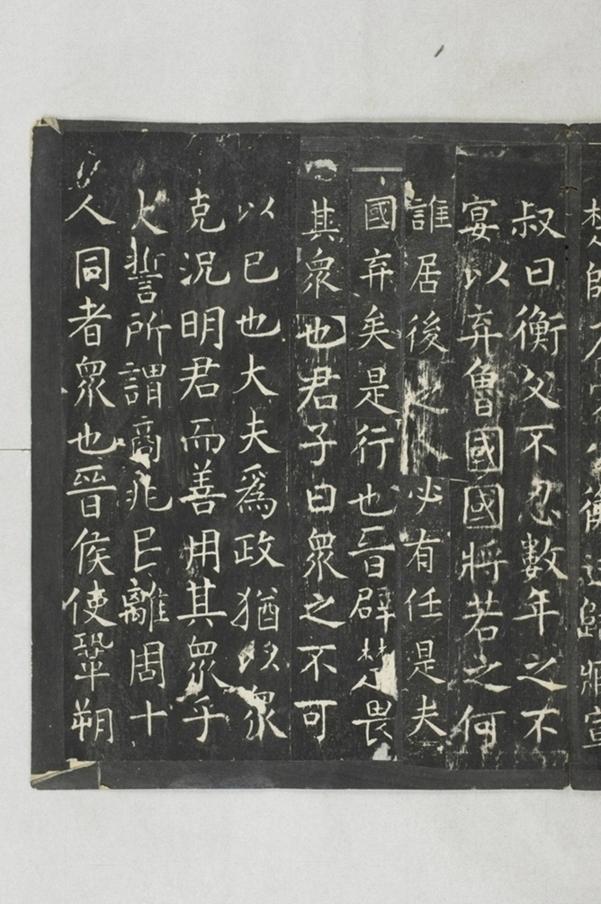 楚師 衡逃歸臧宣
叔曰衡父不忍數年之不
宴以弃魯國國將若之何
誰居後之人必有任是夫
國弃矣是行也晉辟楚畏
其衆也君子曰衆之不可
以巳也大夫爲政猶以衆
克況明君而善用其衆乎
大誓所謂商兆民離周十
人同者衆也晉侯使鞏朔